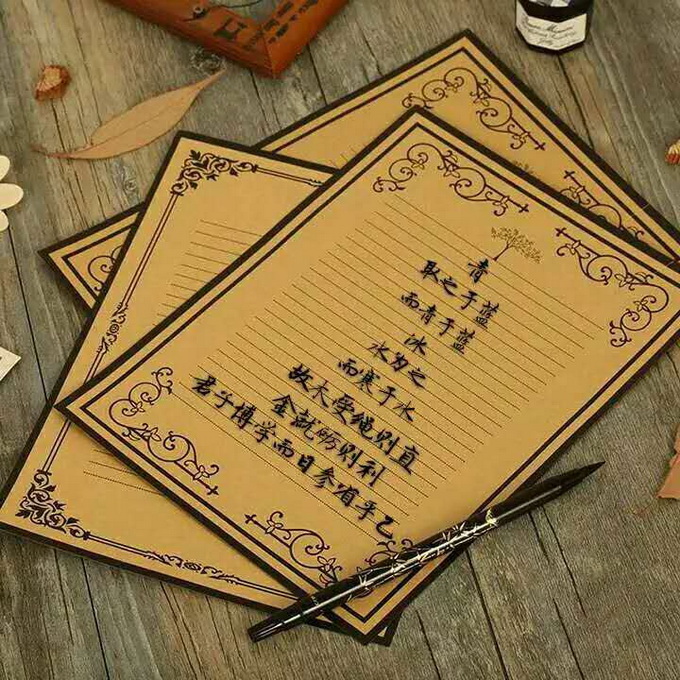 青
取之于蓝
而青于蓝
冰
水为之
而寒于水
故木受绳则直
金就砺则利
君子博学而日参省乎己